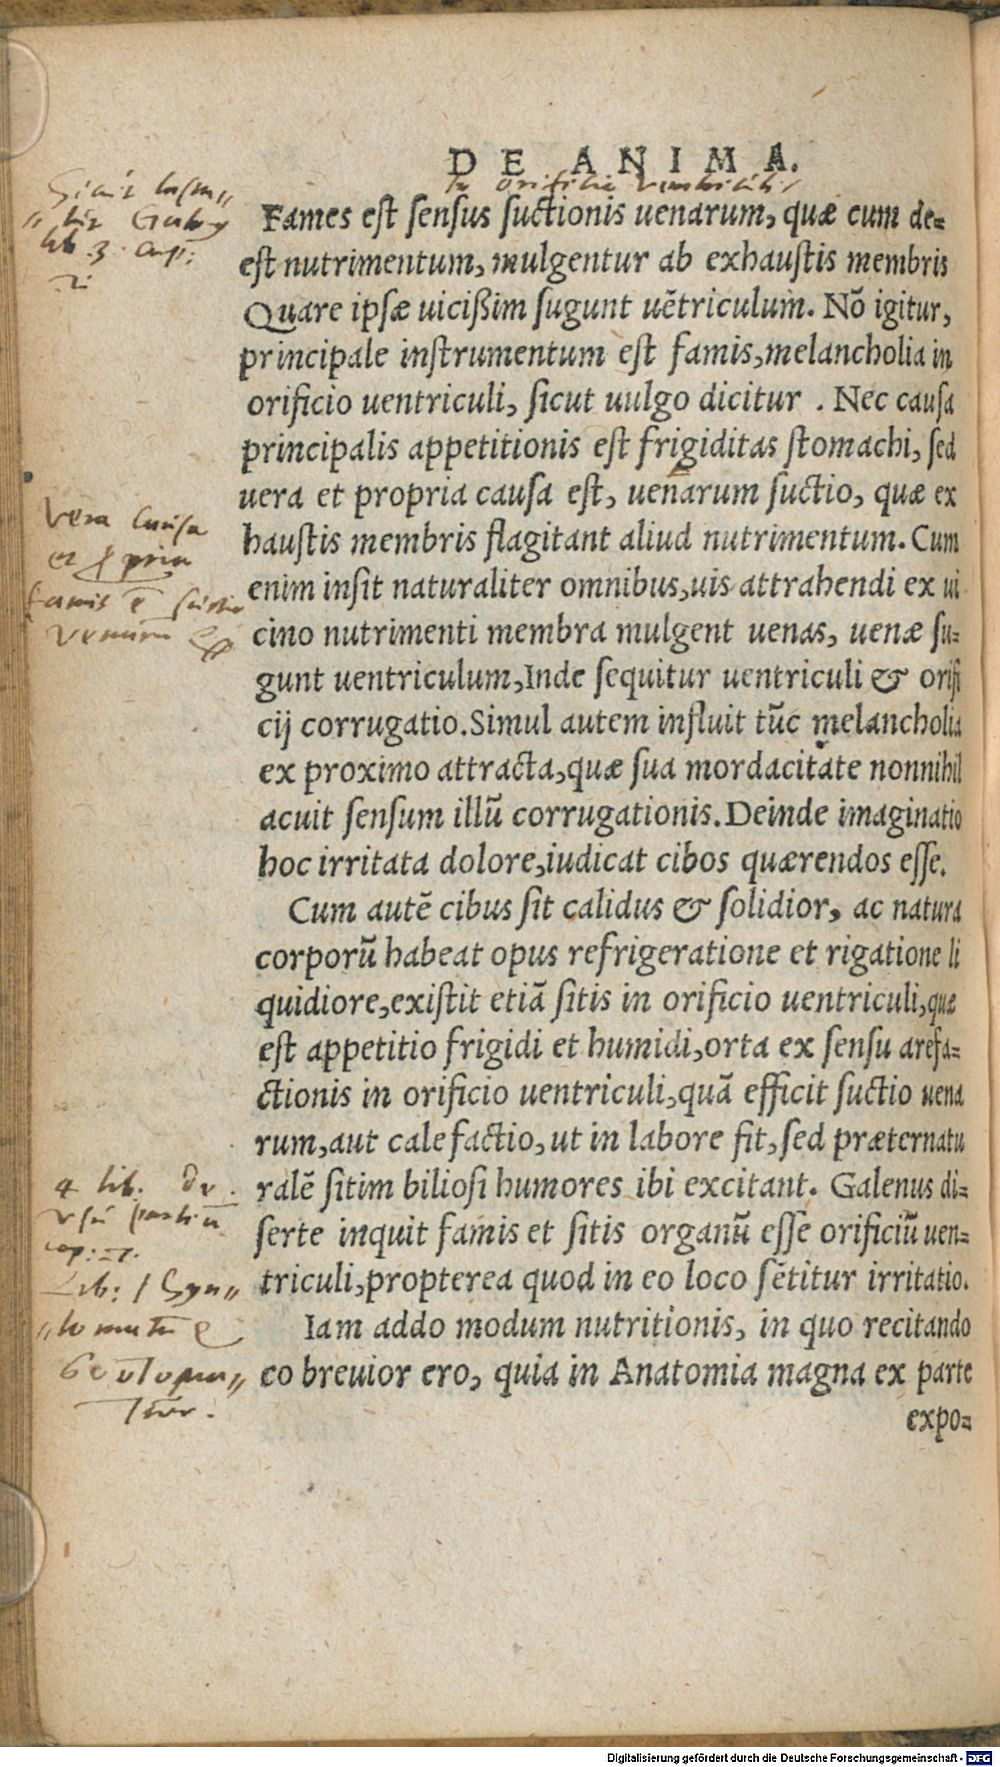 DE ANIMA.
Fames est sensus suctionis uenarum, quæ cum de=
est nutrimentum, mulgentur ab exhaustis membris
Quare ipsæ uicißim sugunt uẽtriculum. Nõ igitur,
principale instrumentum est famis, melancholia in
orificio uentriculi, sicut uulgo dicitur . Nec causa
principalis appetitionis est frigiditas stomachi, sed
uera et propria causa est, uenarum suctio, quæ ex
haustis membris flagitant aliud nutrimentum. Cum
enim insit naturaliter omnibus, uis attrahendi ex ui
cino nutrimenti membra mulgent uenas, uenæ su=
gunt uentriculum, Inde sequitur uentriculi & orifi
cij corrugatio. Simul autem influit tũc melancholia
ex proximo attracta, quæ sua mordacitate nonnihil
acuit sensum illũ corrugationis. Deinde imaginatio
hoc irritata dolore, iudicat cibos quærendos esse.
Cum autẽ cibus sit calidus & solidior, ac natura
corporũ habeat opus refrigeratione et rigatione li
quidiore, existit etiã sitis in orificio uentriculi, quæ
est appetitio frigidi et humidi, orta ex sensu arefa=
ctionis in orificio uentriculi, quã efficit suctio uena
rum, aut calefactio, ut in labore fit, sed præternatu
ralẽ sitim biliosi humores ibi excitant. Galenus di=
serte inquit famis et sitis organũ esse orificiũ uen=
triculi, propterea quod in eo loco sẽtitur irritatio.
Iam addo modum nutritionis, in quo recitando
eo breuior ero, quia in Anatomia magna ex parte
expo=
lib. 3. cap:
Vera causa
famis ẽ suctio
4 lib. de
cap: 7.
Digitalisierung gefördert durch die Deutsche Forschungsgemeinschaft - DFG